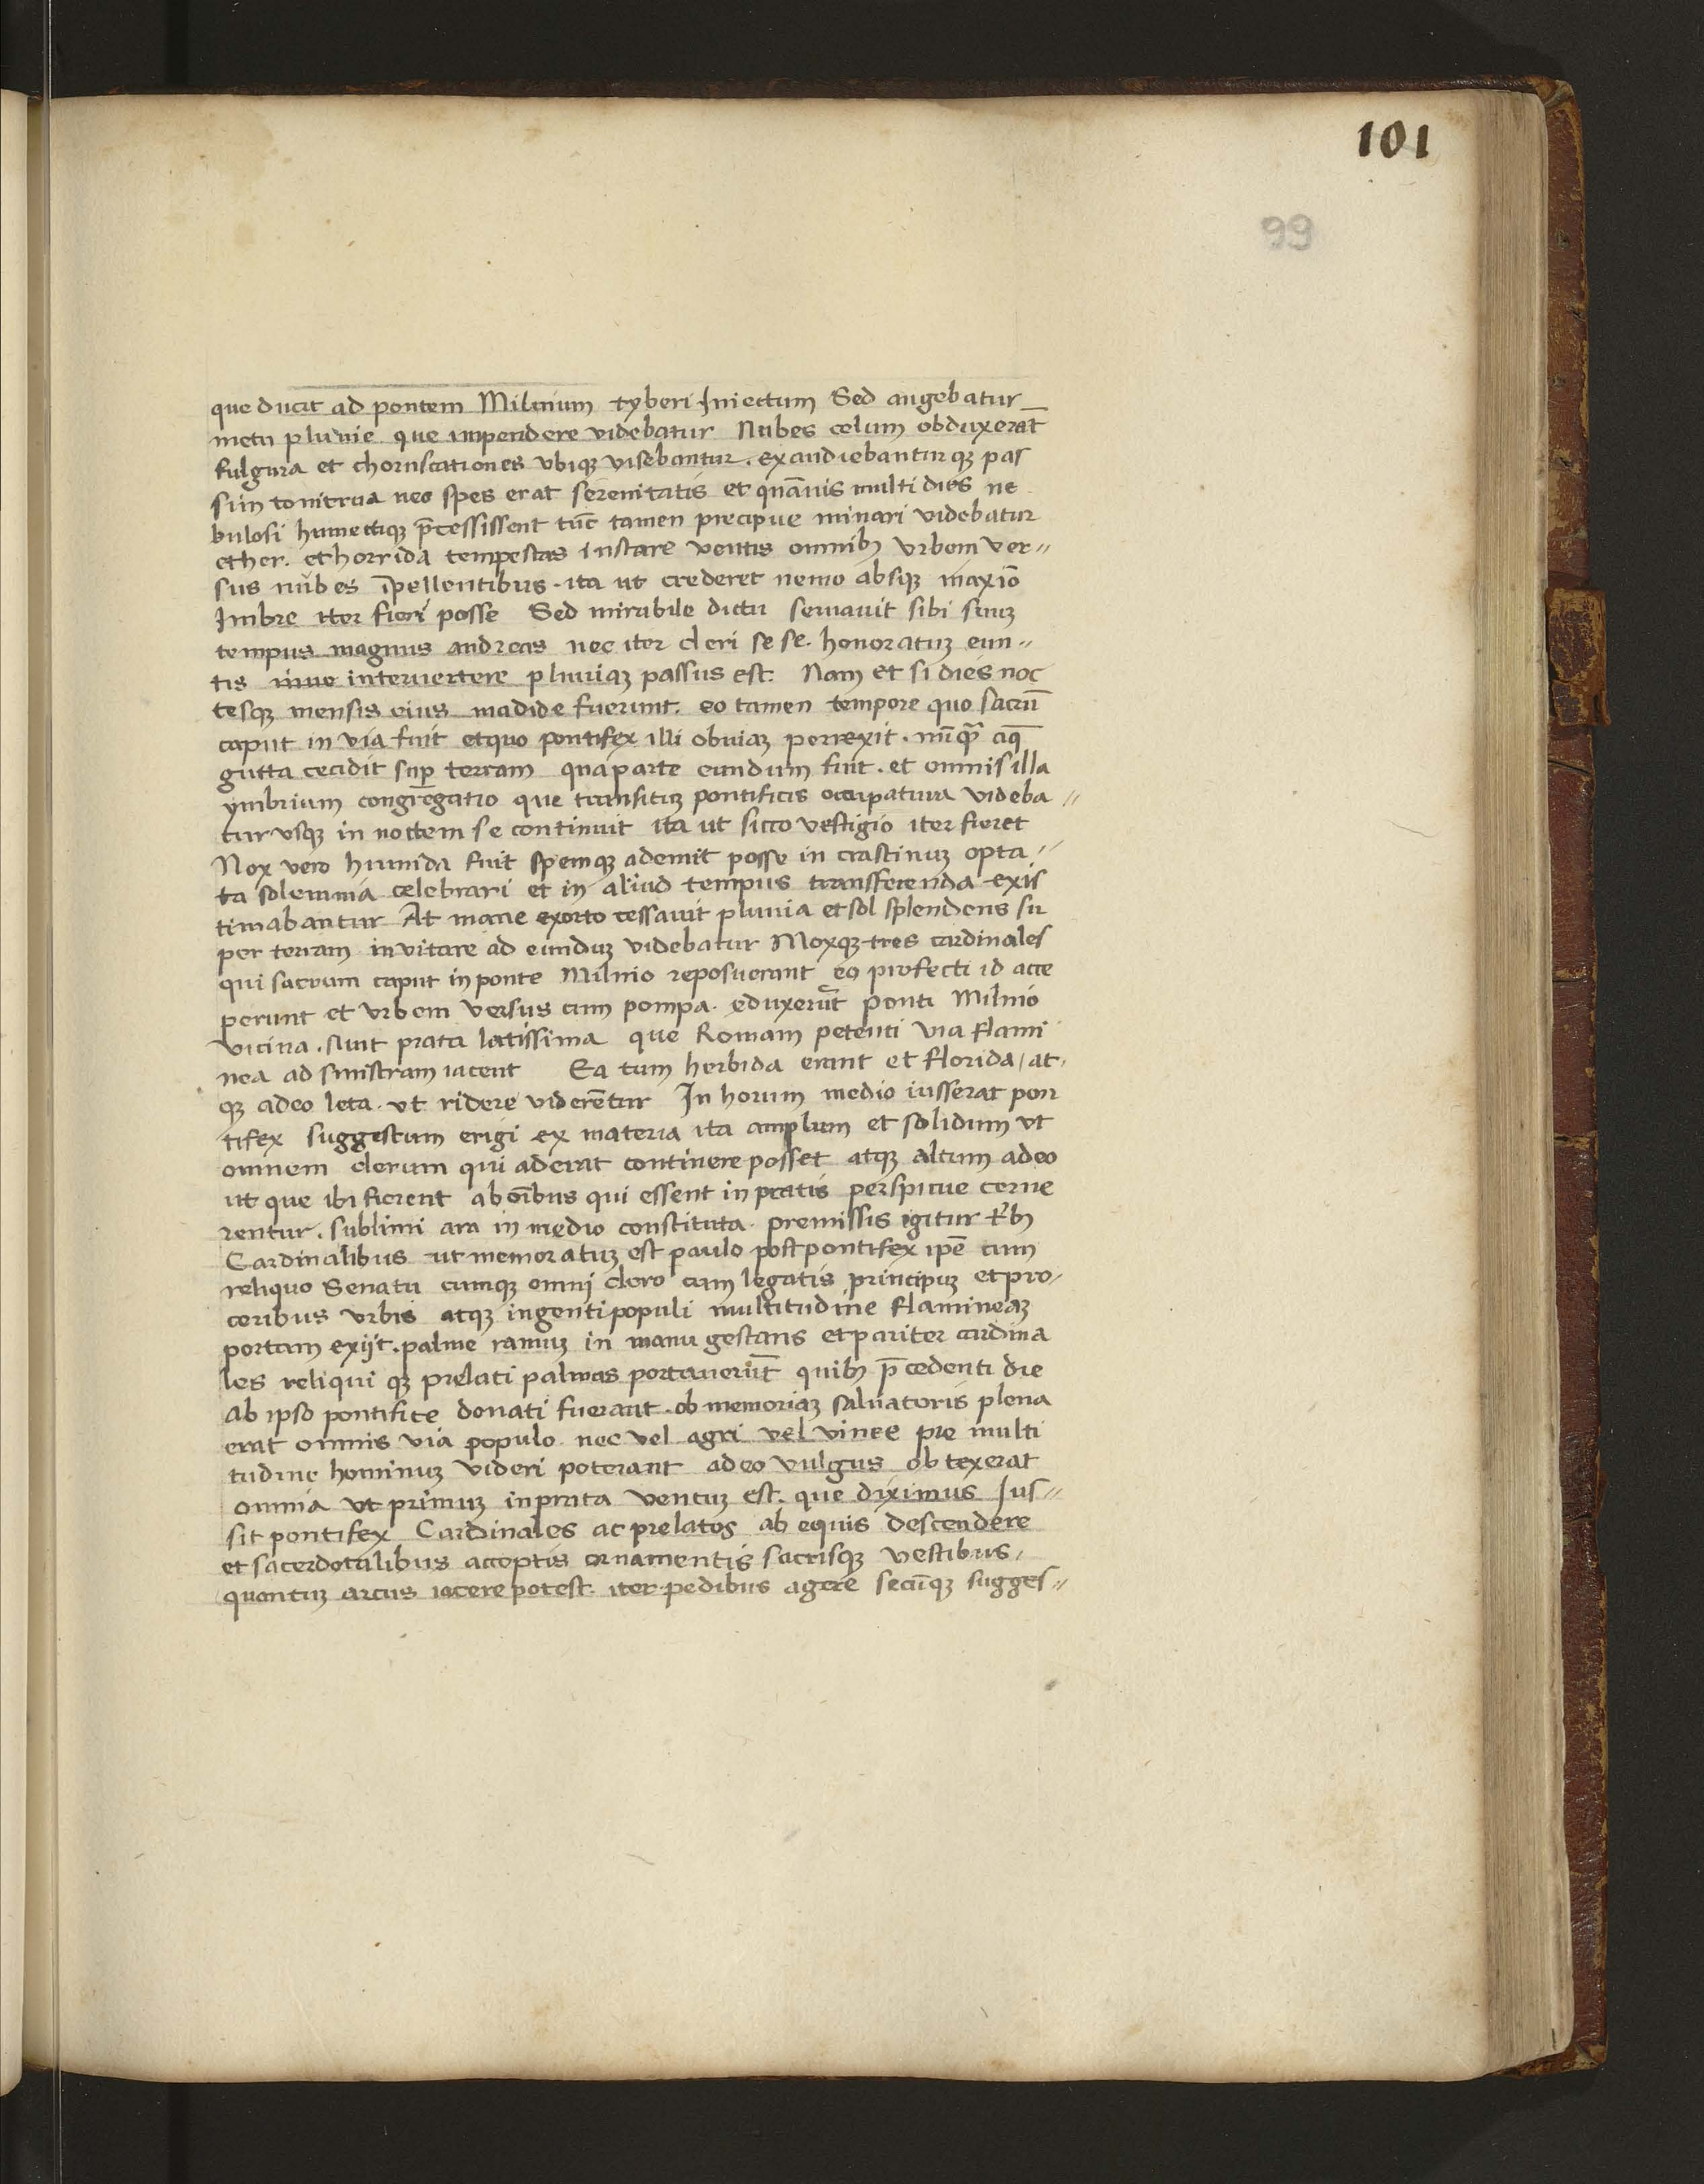 101
99
que ducit ad pontem Miluium tyberi Iniectum Sed augebatur
metu pluuie que impendere videbatur Nubes celum obduxerāt
fulgura et choruscationes vbiqꝫ visebantur . exaudiebanturqꝫ pas
sim tonitrua nec spes erat serenitatis et quāuis multi dies ne
bulosi humectiqꝫ p̄cessissent tūc tamen precipue minari videbatur
ether . et horrida tempestas instare ventis omnibꝫ vrbem ver〃
sus nubes īpellentibus . ita ut crederet nemo absqꝫ maxīo
Imbre iter fieri posse Sed mirabile dictu seruauit sibi suuꝫ
tempus magnus andreas nec iter cleri se se . honoratuꝫ eun〃
tis interuertere pluuiaꝫ passus est . Nam et si dies noc
tesqꝫ mensis eius madide fuerunt . eo tamen tempore quo sacrū
caput in via fuit et quo pontifex illi obuiaꝫ perrexit . nūqꝫ̄ aq̄
gutta cecidit suꝑ terram qua parte eundum fuit . et omnis illa
ymbrium congregatio que transituꝫ pontificis occupatura videba〃
tur vsqꝫ in noctem se continuit ita ut sicco vestigio iter fieret
Nox vero humida fuit spemqꝫ ademit posse in crastinuꝫ opta〃
ta solemnia celebrari et in aliud tempus transferenda exis
timabantur At mane exorto cessauit pluuia et sol splendens su
per terram invitare ad eunduꝫ videbatur Moxqꝫ tres cardinales
qui sacrum caput in ponte Miluio reposuerant eo profecti id acce
perunt et vrbem versus cum pompa . eduxerūt ponti Miluio
vicina . sunt prata latissima que Romam petenti via flami
nea ad sinistram iacent Ea tum herbida erant et florida / at .
qꝫ adeo leta . vt ridere viderētur In horum medio iusserat pon
tifex suggestum erigi ex materia ita amplum et solidum vt
omnem clerum qui aderat continere posset atqꝫ altum adeo
ut que ibi fierent ab oībus qui essent in pratis perspicue cerne
rentur . sublimi ara in medio constituta . premissis igitur trībꝫ
Cardinalibus ut memoratuꝫ est paulo post pontifex ipē cum
reliquo Senatu cumqꝫ omni clero cum legatis principuꝫ et pro /
ceribus vrbis atqꝫ ingenti populi multitudine flamineaꝫ
portam exijt . palme ramuꝫ in manu gestans et pariter cardina
les reliqui qꝫ prelati palmas portauerūt quibꝫ p̄cedenti die
ab ipso pontifice donati fuerant . ob memoriaꝫ saluatoris plena
erat omnis via populo . nec vel agri vel vinee pre multi
tudine hominuꝫ videri poterant adeo vulgus obtexerat
omnia vt primuꝫ in prata ventuꝫ est . que diximus Jus〃
sit pontifex Cardinales ac prelatos ab equis descendere
et sacerdotalibus acceptis ornamentis sacrisqꝫ vestibus /
quantuꝫ arcus iacere potest . iter . pedibus agere secūqꝫ sugges〃